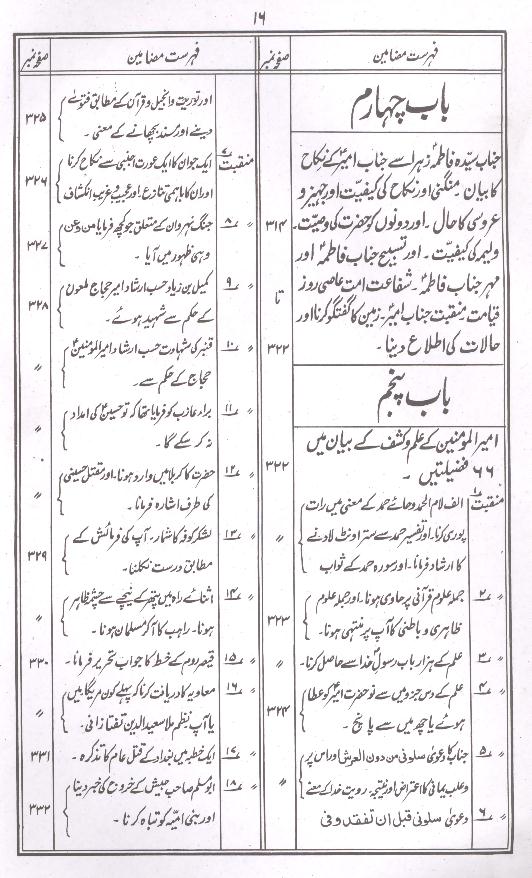 ۱۶
فہرست مضامین
صفحہ نمبر
باب چہارم
جناب سیدہ فاطمہ زہرا سے جناب امیرؑ کے نکاح
کا بیان۔ منگنی اور نکاح کی کیفیت اور جہیز و
عروسی کا حال۔ اور دونوں کو حضرت کی وصیت۔
۳۱۴
ولیمہ کی کیفیت۔ اور تسبیح جناب فاطمہؑ اور
مہر جناب فاطمہؑ۔ شفاعت امت عاصی روز
تا
قیامت۔ منقبت جناب امیرؑ۔ زمین کا گفتگو کرنا اور
حالات کی اطلاع دینا۔
۳۲۲
باب پنجم
امیرالمؤمنین کے علم و کشف کے بیان میں
۶۶ فضیلتیں۔
۳۲۲
منقبت ۱ الف لام الحمد و حائے حمد کے معنی میں رات
پوری کرنا۔ اور تفسیر حمد سے ستر اونٹ لادنے
〃
کا ارشاد فرمانا۔ اور سورہ حمد کے ثواب
〃 ۲ جملہ علوم قرآنی پر حاوی ہونا۔ اور جملہ علوم
ظاہری و باطنی کا آپ پر منتہی ہونا۔
۳۲۳
〃 ۳ علم کے ہزار باب رسولؐ خدا سے حاصل کرنا۔
〃
〃 ۴ علم کے دس جزو میں سے نو حضرت امیرؑ کو عطا
ہوئے یا چھ میں سے پانچ۔
۳۲۴
〃 ۵ جناب کا دعویٰ سلونی من دون العرش اور اس پر
وعلب یمانی کا اعتراض اور نتیجہ۔ رویت خدا کے معنے
〃
〃 ۶ دعویٰ سلونی قبل ان تفقدونی
فہرست مضامین
صفحہ نمبر
اور توریت و انجیل و قرآن کے مطابق فتوے
دینے اور مسند بچھانے کے معنی۔
۳۲۵
منقبت ۷ ایک جوان کا ایک عورت اجنبی سے نکاح کرنا
اور ان کا باہمی تنازع اور عجیب و غریب انکشاف
۳۲۶
〃 ۸ جنگ نہروان کے متعلق جو کچھ فرمایا من و عن
وہی ظہور میں آیا۔
۳۲۷
〃 ۹ کمیل بن زیاد حسب ارشاد امیر حجاج ملعون
کے حکم سے شہید ہوئے۔
۳۲۸
〃 ۱۰ قنبر کی شہادت حسب ارشاد امیرالمومنینؑ
حجاج کے حکم سے۔
〃
〃 ۱۱ براء عازب کو فرمایا تھا کہ تو حسینؑ کی امداد
نہ کر سکے گا۔
〃
〃 ۱۲ حضرت کا کربلا میں وارد ہونا۔ اور مقتل حسینی
کی طرف اشارہ فرمانا۔
〃
〃 ۱۳ لشکر کوفہ کا شمار۔ آپ کی فرمائش کے
مطابق درست نکلنا۔
۳۲۹
〃 ۱۴ اثنائے راہ میں پتھر کے نیچے سے چشمہ ظاہر
ہونا۔ راہب کا آ کر مسلمان ہونا۔
〃
〃 ۱۵ قیصر روم کے خط کا جواب تحریر فرمانا۔
۳۳۰
〃 ۱۶ معاویہ کا دریافت کرنا کہ پہلے کون مریگا میں
یا آپ نظم ملا سعید الدین تفتازانی۔
〃
〃 ۱۷ ایک خطبہ میں بغداد کے قتل عام کا تذکرہ۔
۳۳۱
〃 ۱۸ ابو مسلم صاحب جیش کے خروج کی خبر دینا
اور بنی امیہ کو تباہ کرنا۔
۳۳۲